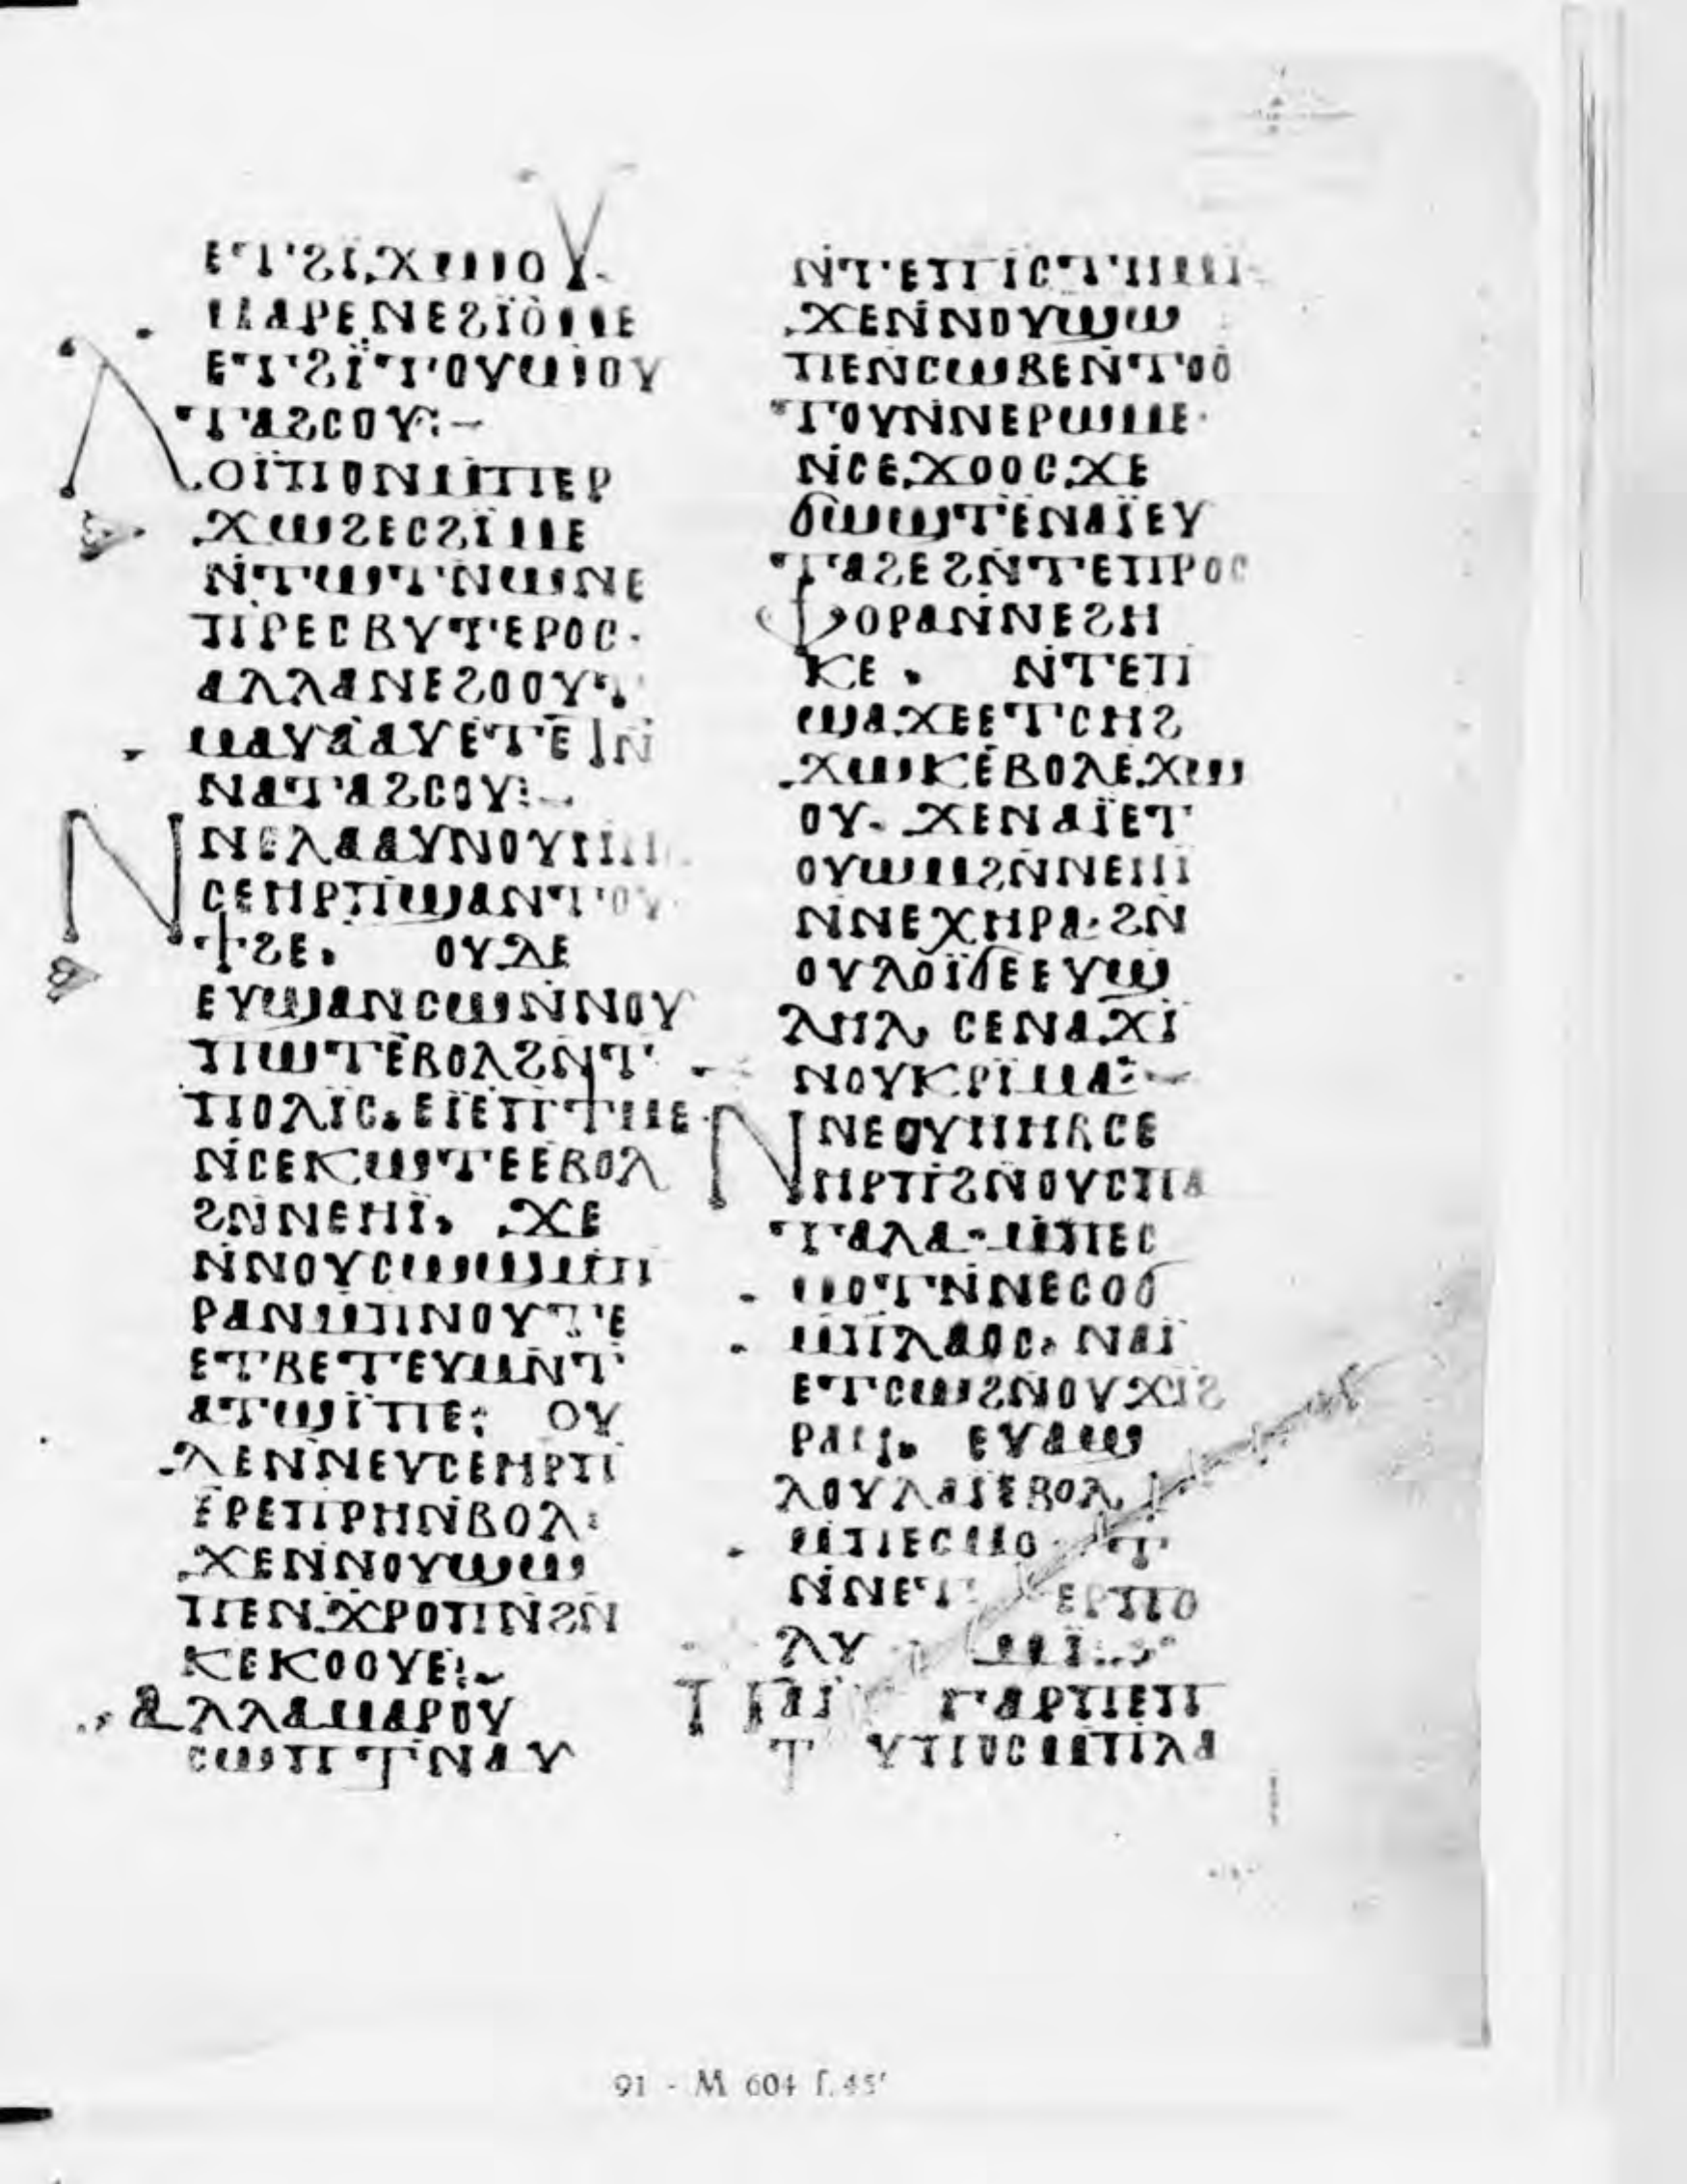 ⲉⲧϩⲓϫⲱⲟⲩ·
ⲙⲁⲣⲉⲛⲉϩⲓⲟⲙⲉ
ⲉⲧϩⲓⲧⲟⲩⲱⲟⲩ
ⲧⲁϩⲥⲟⲩ:–
ⲗⲟⲓⲡⲟⲛⲙⲡⲉⲣ
ⲭⲱϩⲉⲥϩⲓⲙⲉ
ⲛⲧⲱⲧⲛⲱⲛⲉ
ⲡⲣⲉⲥⲃⲩⲧⲉⲣⲟⲥ·
ⲁⲗⲗⲁⲛⲉϩⲟⲟⲩⲧ
ⲙⲁⲩⲁⲁⲩⲉⲧⲉⲧⲛ
ⲛⲁⲧⲁϩⲥⲟⲩ:–
ⲛⲛⲉⲗⲁⲁⲩⲛⲟⲩⲏⲏⲃ
ⲥⲉⲏⲣⲡϣⲁⲛⲧⲟⲩ
ϯϩⲉ· ⲟⲩⲇⲉ
ⲉⲩϣⲁⲛⲥⲱⲛⲛⲟⲩ
ⲡⲱⲧⲉⲃⲟⲗϩⲛⲧ
ⲡⲟⲗⲓⲥ·ⲉⲓⲉⲡϯⲙⲉ
ⲛⲥⲉⲕⲱⲧⲉⲉⲃⲟⲗ
ϩⲛⲛⲉⲏⲓ· ϫⲉ
ⲛⲛⲟⲩⲥⲱϣⲙⲡ
ⲣⲁⲛⲙⲡⲛⲟⲩⲧⲉ
ⲉⲧⲃⲉⲧⲉⲩⲙⲛⲧ
ⲁⲧϣⲓⲡⲉ: ⲟⲩ
ⲇⲉⲛⲛⲉⲩⲥⲉⲏⲣⲡ
ⲉⲣⲉⲡⲣⲏⲛⲃⲟⲗ:
ϫⲉⲛⲛⲟⲩⲱϣ
ⲡⲉⲛϫⲣⲟⲡⲛϩⲛ
ⲕⲉⲕⲟⲟⲩⲉ:~
ⲁⲗⲗⲁⲙⲁⲣⲟⲩ
ⲥⲱⲡϯⲛⲁⲩ
ⲛⲧⲉⲡⲓⲥⲧⲏⲙⲏ
ϫⲉⲛⲛⲟⲩⲱϣ
ⲡⲉⲛⲥⲱⲃⲉⲛⲧⲟⲟ
ⲧⲟⲩⲛⲛⲉⲣⲱⲙⲉ·
ⲛⲥⲉϫⲟⲟⲥϫⲉ
ϭⲱϣⲧⲉⲛⲁⲓⲉⲩ
ⲧⲁϩⲉϩⲛⲧⲉⲡⲣⲟⲥ
ⲫⲟⲣⲁⲛⲛⲉϩⲏ
ⲕⲉ· ⲛⲧⲉⲡ
ϣⲁϫⲉⲉⲧⲥⲏϩ
ϫⲱⲕⲉⲃⲟⲗⲉϫⲱ
ⲟⲩ· ϫⲉⲛⲁⲓⲉⲧ
ⲟⲩⲱⲙϩⲛⲛⲉⲏⲓ
ⲛⲛⲉⲭⲏⲣⲁ·ϩⲛ
ⲟⲩⲗⲟⲓϭⲉⲉⲩϣ
ⲗⲏⲗ ⲥⲉⲛⲁϫⲓ
ⲛⲟⲩⲕⲣⲓⲙⲁ:–
ⲛⲛⲉⲟⲩⲏⲏⲃⲥⲉ
ⲏⲣⲡϩⲛⲟⲩⲥⲡⲁ
ⲧⲁⲗⲁ·ⲙⲡⲉⲥ
ⲙⲟⲧⲛⲛⲉⲥⲟϭ
ⲙⲡⲗⲁⲟⲥ· ⲛⲁⲓ
ⲉⲧⲥⲱϩⲛⲟⲩϫⲓϩ
ⲣⲁϥ· ⲉⲩⲁϣ
ⲗⲟⲩⲗⲁⲓⲉⲃⲟⲗ
ⲙⲡⲉⲥⲙⲟⲧ
ⲛⲛⲉⲧ ⲉⲣⲡⲟ
ⲡⲁⲓ ⲅⲁⲣⲡⲉⲡ
ⲧⲩⲡⲟⲥⲙⲡⲗⲁ
91 - M 604 f. 45ʳ